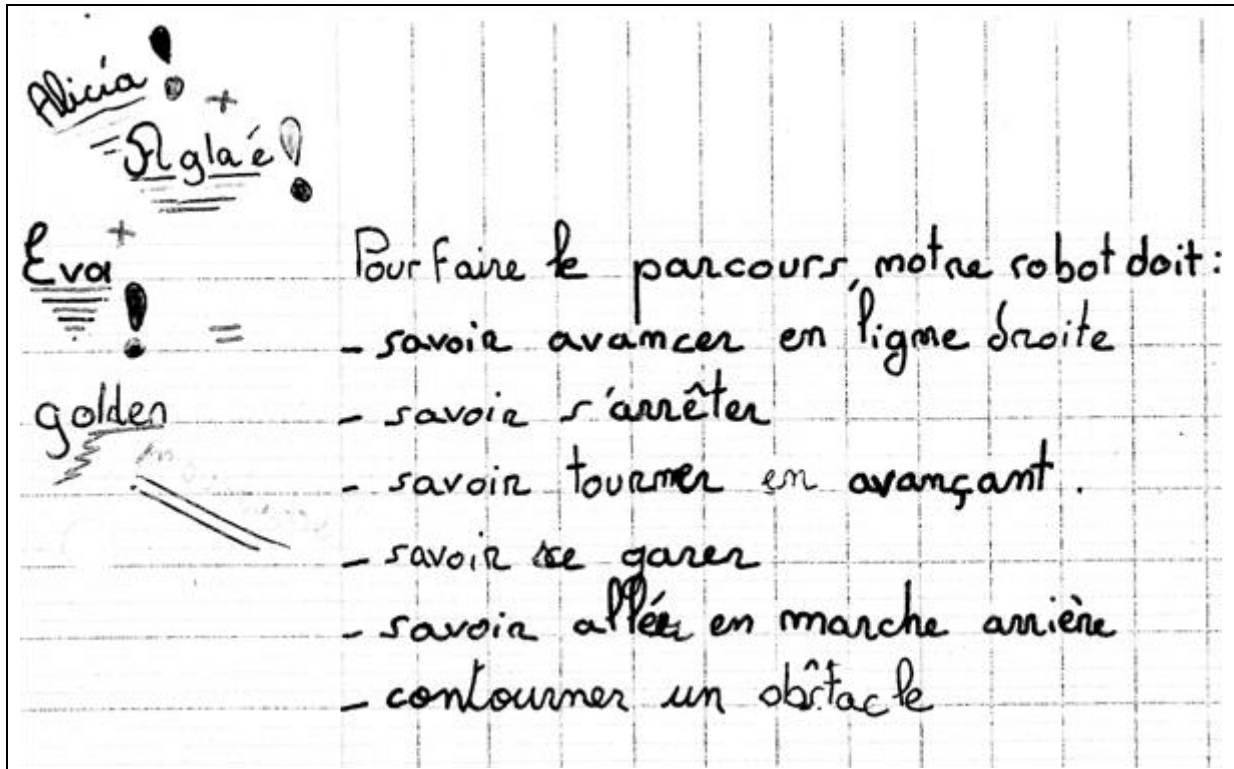 Alicia !
+
Aglaé !
+
Eva !
=
golden
Pour faire le parcours, notre robot doit :
- savoir avancer en ligne droite
- savoir s'arrêter
- savoir tourner en avançant.
- savoir se garer
- savoir aller en marche arrière
- contourner un obstacle